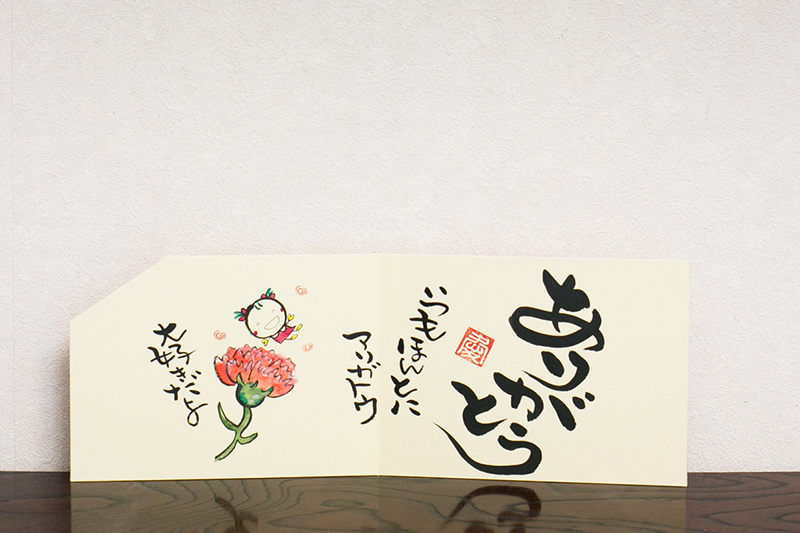 ありがとう
いつもほんとに
アリガトウ
大好きだよ